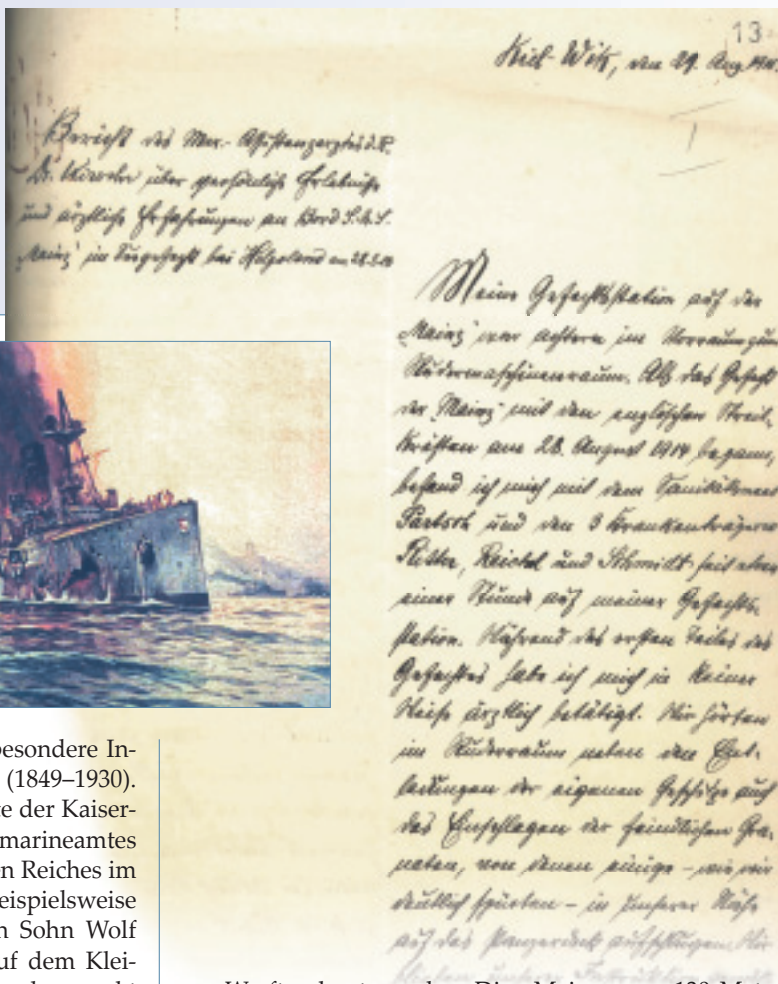 13
Kiel-Wik, den 29. Aug. 
Bericht des Mar.-Assistenzarztes d. R.
Dr. über persönliche Erlebnisse
und ärztliche Erfahrungen an Bord S.M.S.
„Mainz“ im Seegefecht bei Helgoland am 28.8.
Meine Gefechtsstation auf der
„Mainz“ war achtern im Vorraum zum
Rudermaschinenraum. Als das Gefecht
der „Mainz“ mit den englischen Streit-
kräften am 28. August 1914 begann,
befand ich mich mit dem Sanitätsmaat
Partsch und den 3 Krankenträgern
Ritter, Reichel und Schmidt seit etwa
einer Stunde auf meiner Gefechts-
station. Während des ersten Teiles des
Gefechtes habe ich mich in keiner
Weise ärztlich betätigt. Wir hörten
im Ruderraum neben den Ent-
ladungen der eigenen Geschütze auch
das Einschlagen der feindlichen Gra-
naten, von denen einige – wie wir
deutlich spürten – in unserer Nähe
auf das Panzerdeck aufschlugen. Wir
besondere In-
(1849–1930).
te der Kaiser-
marineamtes
en Reiches im
eispielsweise
n Sohn Wolf
uf dem Klei-